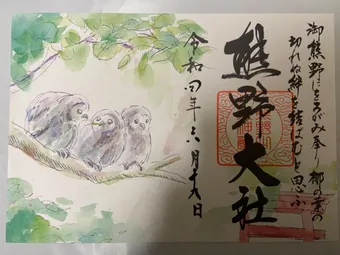 御熊野にをろがみ奉り梛の葉の
切れぬ絆を結ばむと思ふ
熊野大社
令和四年六月十九日